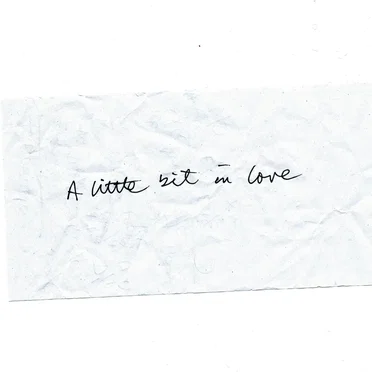 A little bit in love